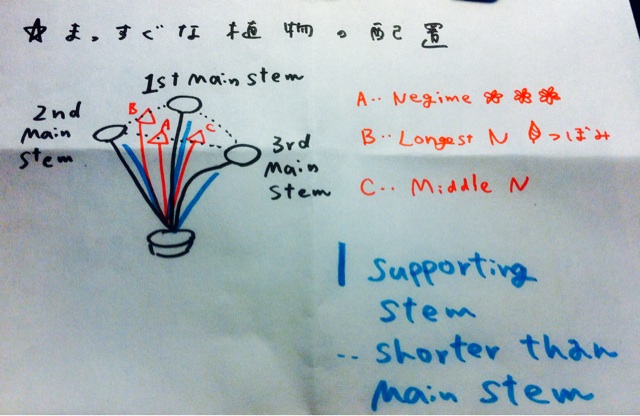 ☆ まっすぐな植物の配置
1st main stem
2nd
main
stem
B
A
C
3rd
Main
stem
A‥ Negime
B‥ Longest N つぼみ
C‥ Middle N
| supporting
stem
‥ shorter than
main stem